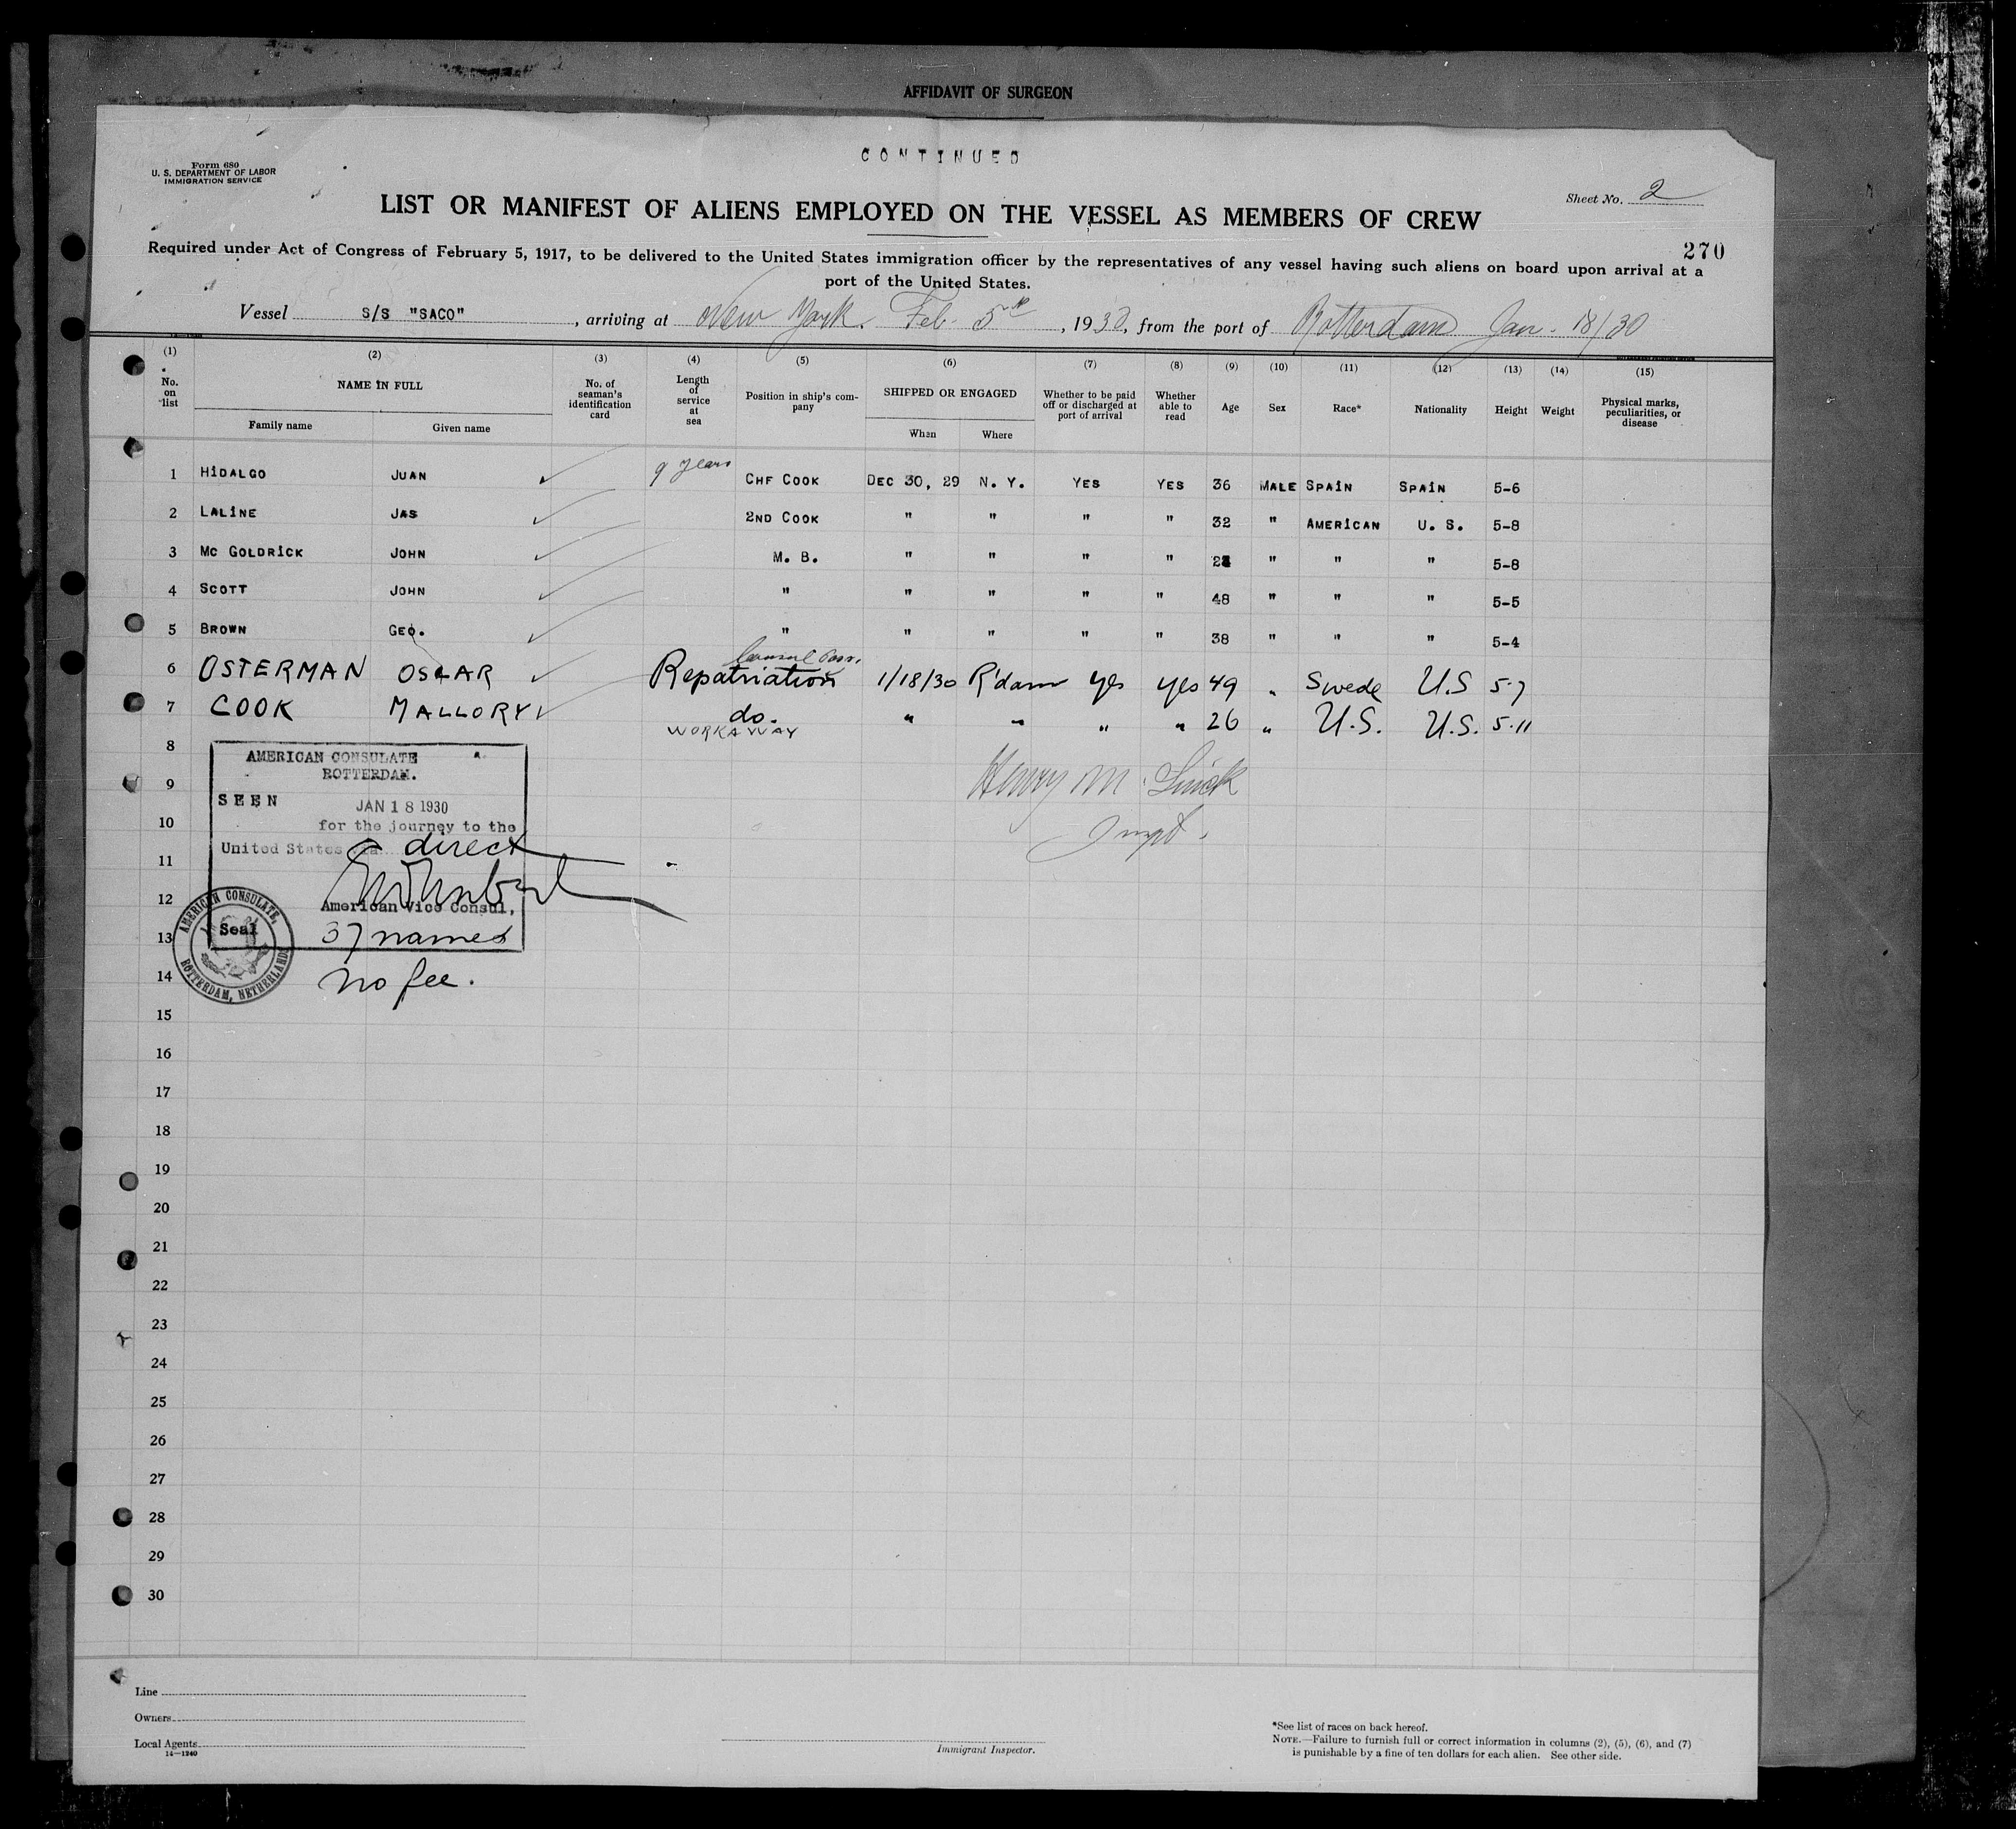 AFFIDAVIT OF SURGEON
CONTINUED
Form 680
U. S. DEPARTMENT OF LABOR
IMMIGRATION SERVICE
Sheet No. 2
LIST OR MANIFEST OF ALIENS EMPLOYED ON THE VESSEL AS MEMBERS OF CREW
270
Required under Act of Congress of February 5, 1917, to be delivered to the United States immigration officer by the representatives of any vessel having such aliens on board upon arrival at a
port of the United States.
Vessel S/S "SACO", arriving at New York. Feb. 5th, 1930, from the port of Rotterdam Jan. 18/30
(1) (2) (3) (4) (5) (6) (7) (8) (9) (10) (11) (12) (13) (14) (15)
No. on list
NAME IN FULL
Family name Given name
No. of seaman's identification card
Length of service at sea
Position in ship's company
SHIPPED OR ENGAGED
When Where
Whether to be paid off or discharged at port of arrival
Whether able to read
Age
Sex
Race*
Nationality
Height
Weight
Physical marks, peculiarities, or disease
1 HIDALGO JUAN ✓ 9 years CHF COOK DEC 30, 29 N. Y. YES YES 36 MALE SPAIN SPAIN 5-6
2 LALINE JAS ✓ 2ND COOK " " " " 32 " AMERICAN U. S. 5-8
3 MC GOLDRICK JOHN ✓ M. B. " " " " " " " 5-8
4 SCOTT JOHN ✓ " " " " " 48 " " " 5-5
5 BROWN GEO. ✓ " " " " " 38 " " " 5-4
6 OSTERMAN OSCAR ✓ Repatriation 1/18/30 R'dam yes yes 49 " Swede U.S 5-7
7 COOK MALLORY ✓ do. " " " " 26 " U.S. U.S. 5-11
WORKAWAY
8
AMERICAN CONSULATE
ROTTERDAM.
9
Henry M.
SEEN JAN 18 1930
10
for the journey to the
11
United States via direct
12
American Vice Consul,
13
Seal
37 names
AMERICAN CONSULATE,
ROTTERDAM, NETHERLANDS
14
no fee.
15
16
17
18
19
20
21
22
23
24
25
26
27
28
29
30
Line
Owners
Local Agents
14—1240
Immigrant Inspector.
*See list of races on back hereof.
NOTE.—Failure to furnish full or correct information in columns (2), (5), (6), and (7)
is punishable by a fine of ten dollars for each alien. See other side.